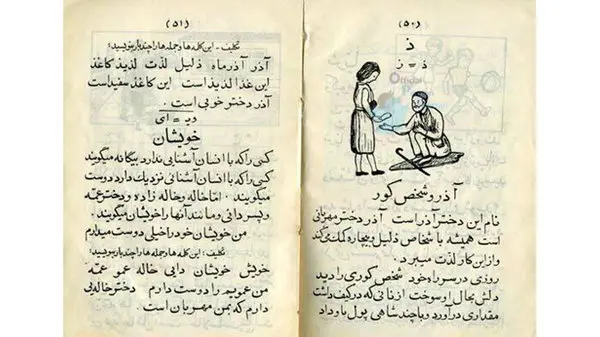 (۵۰)
ذ
ذ = ز
آذر و شخص کور
نام این دختر آذر است آذر دختر مهربانی
است همیشه با شخاص ذلیل و بیچاره کمک می کند
و از این کار لذت میبرد .
روزی در سر راه خود شخص کوری را دید
دلش بحال او سوخت از نانی که در کیف داشت
مقداری درآورد و با چند شاهی پول باو داد
(۵۱)
تکلیف - این کلمه ها و جمله ها را چند بار بنویسید :
آذر آذر ماه ذلیل لذت لذیذ کاغذ
این غذا لذیذ است این کاغذ سفید است
آذر دختر خوبی است .
وی = ای
خویشان
کسی را که با انسان آشنائی ندارد بیگانه میگویند
کسی را که با انسان آشنائی نزدیک دارد دوست
میگویند . اما خاله و خاله زاده و دختر عمّه
و پسر دائی و مانند آنها را خویشان میگویند .
من خویشان خود را خیلی دوست میدارم
تکلیف : این کلمه ها و جمله ها را چند بار بنویسید :
خویش خویشان دایی خاله عمو عمّه
من عمویم را دوست دارم دختر خاله یی
دارم که بمن مهربان است .